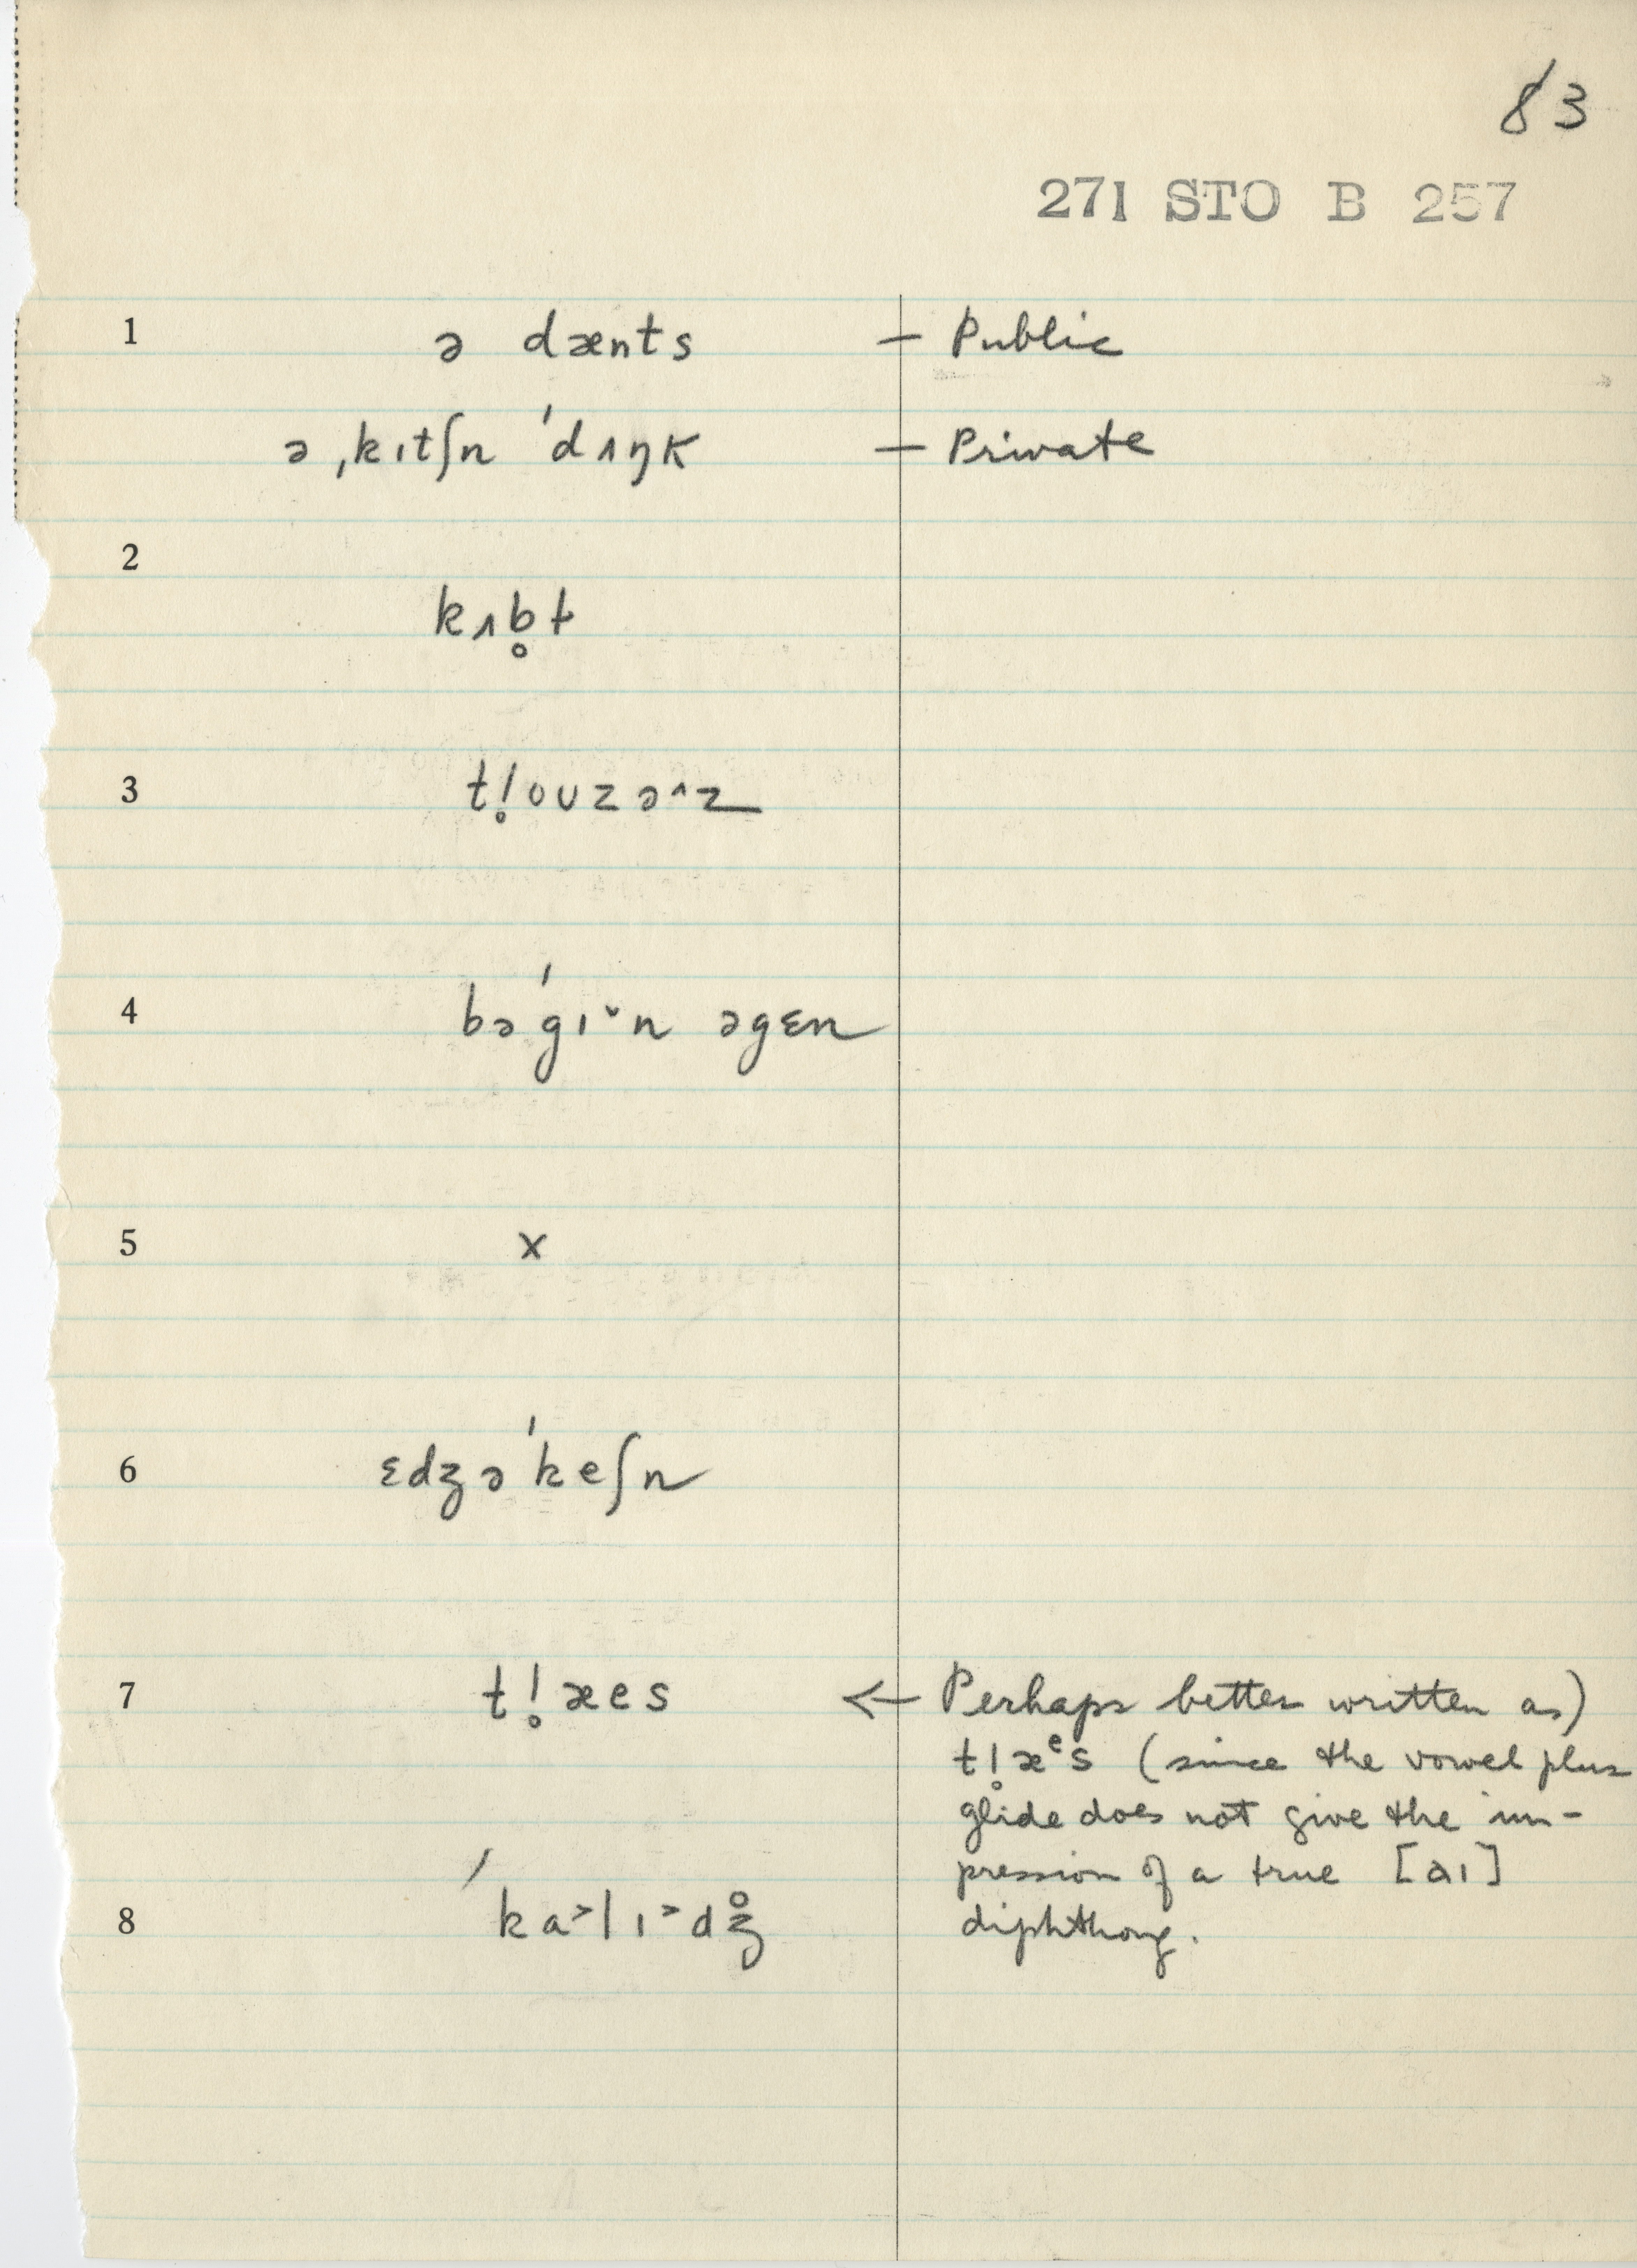 83
271 STO B 257
1 ə dænts — Public
ə ˌkɪtʃn ˈdʌŋk — Private
2
kʌb̥t
3 t!̥ouzə^z
4 bəˈgɪ˅n əgɛn
5 x
6 ɛdʒəˈkeʃn
7 t!̥æes ← Perhaps better written as)
t!̥æᵉs (since the vowel plus
glide does not give the im-
pression of a true [aɪ]
8 ˈka˃lɪ˃dʒ̊ diphthong.